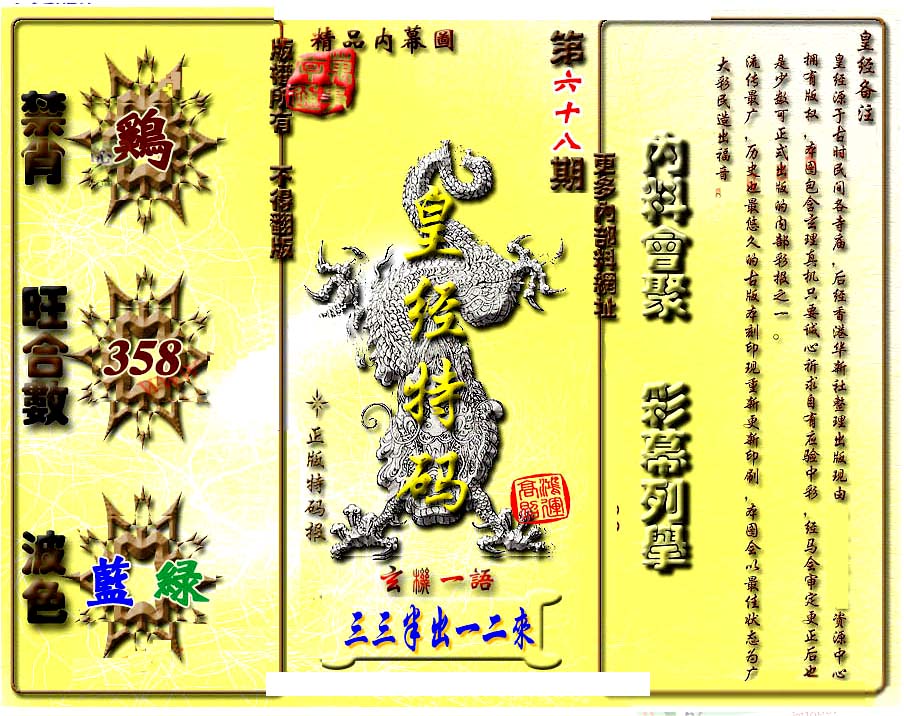 皇经备注
皇经源于古时民间各寺庙，后经香港华新社整理出版现由 资源中心
拥有版权，本图包含玄理真机只要诚心祈求自有应验中彩，经马会审定更正后也
是少数可正式出版的内部彩报之一。
流传最广，历史也最悠久的古版本刻印现重新更新印刷，本图会以最佳状态为广
大彩民造出福音
內料會聚
彩幕列舉
更多內部料網址
第六十八期
精品內幕圖
皇经特码
正版特码报
鴻運高照
玄機一語
三三半出一二來
版權所有 不得翻版
禁肖
鷄
旺合數
358
波色
藍 緑